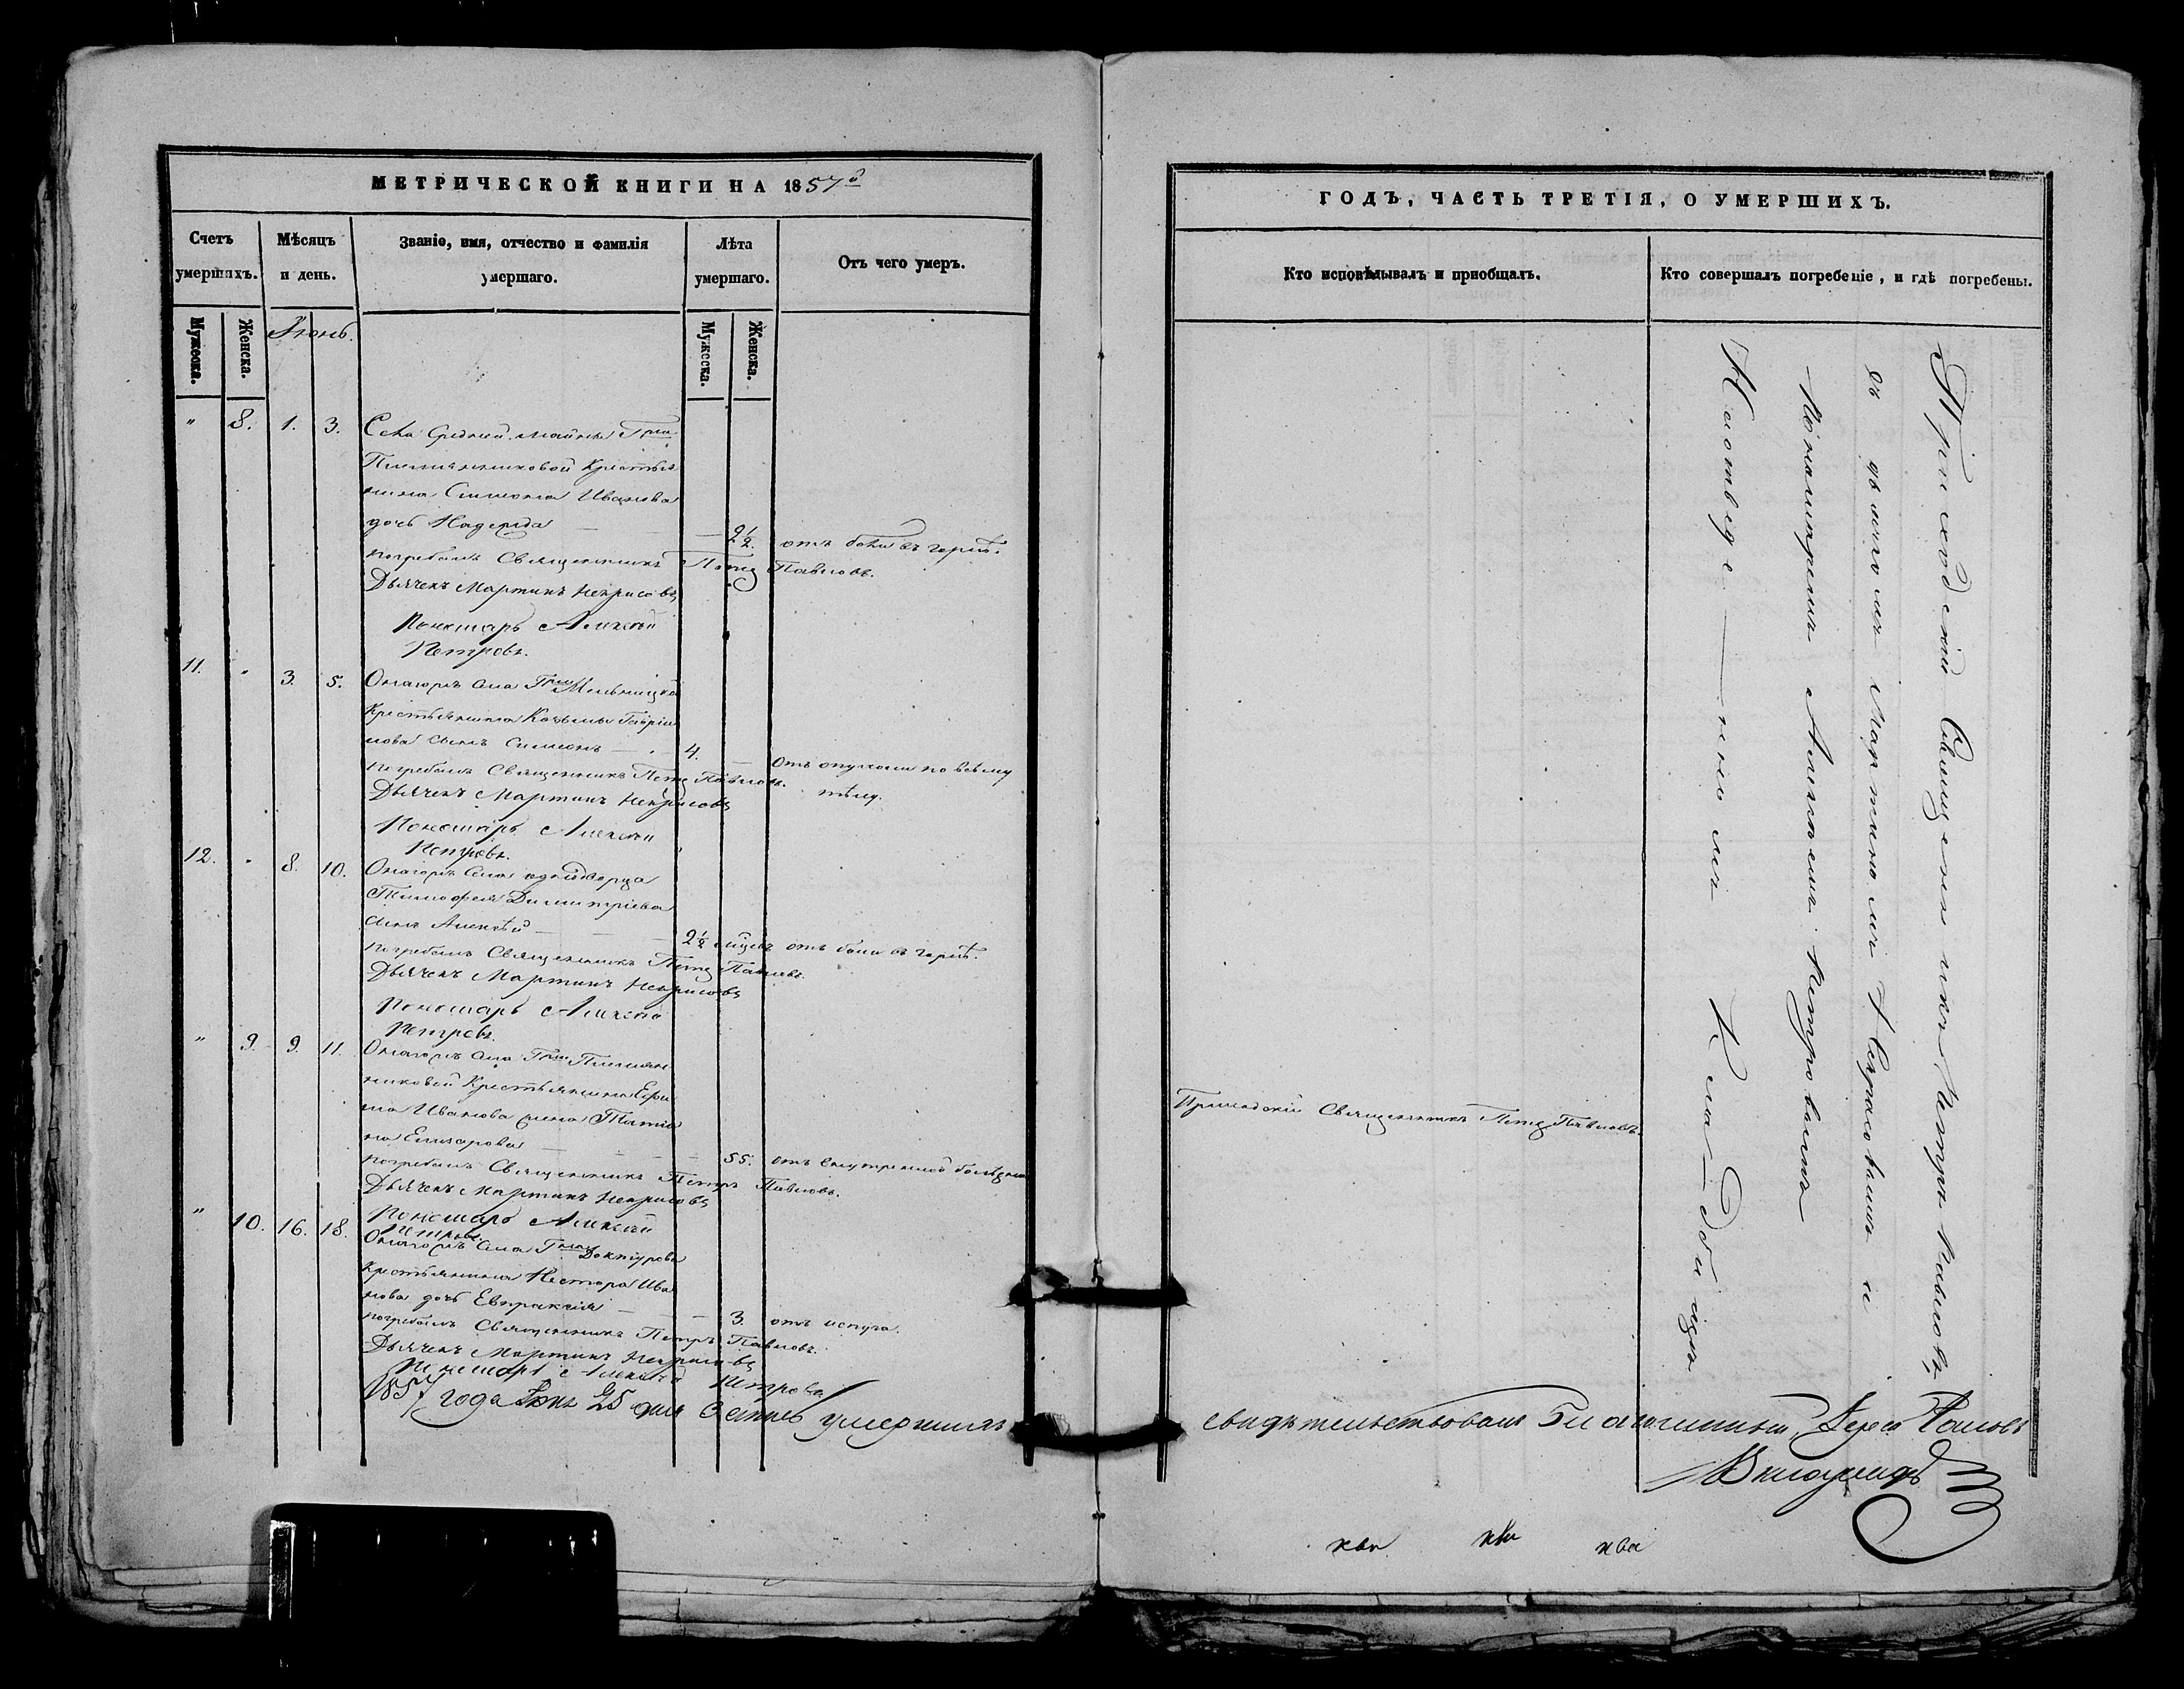 МЕТРИЧЕСКОЙ КНИГИ НА 1857й
Счетъ умершихъ.
Мѣсяцъ и день.
Званіе, имя, отчество и фамилія умершаго.
Лѣта умершаго.
Отъ чего умеръ.
Мужеска.
Женска.
Іюнь.
Мужеска.
Женска.
" 8. 1. 3. Села Средней
Племянниковой Крестья
нина Симеона Иванова
дочь Надежда — — 2½. отъ боли въ горлѣ.
погребалъ Священникъ Петръ Павловъ.
Дьячекъ Мартинъ Некрасовъ
Пономарь Алексѣй
Петровъ.
11. " 3. 5. Онагожъ села Гжи Мельницкой
Крестьянина Козьмы Гаврии
лова сынъ Симеонъ — 4. — Отъ опухоли по всему
тѣлу.
погребалъ Священникъ Петръ Павловъ.
Дьячекъ Мартинъ Некрасовъ
Пономарь Алексѣй
Петровъ.
12. " 8. 10. Онагожъ села однодворца
Тимофея Димитріева
сынъ Алексѣй — — 2½ мѣсяц отъ боли въ горлѣ.
погребалъ Священникъ Петръ Павловъ.
Дьячекъ Мартинъ Некрасовъ
Пономарь Алексѣй
Петровъ.
" 9. 9. 11. Онагожъ села Гжи Племян
никовой Крестьянина
Иванова жена Татіа
на — — 55. отъ внутренней болѣзни
погребалъ Священникъ Петръ Павловъ.
Дьячекъ Мартинъ Некрасовъ
Пономарь Алексѣй
Петровъ.
" 10. 16. 18. Онагожъ села Гжи Доктурова
Крестьянина Нестора Ива
нова дочь Евпраксія — — 3. отъ испуга.
погребалъ Священникъ Петръ Павловъ.
Дьячекъ Мартинъ Некрасовъ
Пономарь Алексѣй Петровъ
1857 года Іюня 25 дня Сею умершихъ
ГОДЪ, ЧАСТЬ ТРЕТІЯ, О УМЕРШИХЪ.
Кто исповѣдывалъ и приобщалъ.
Кто совершалъ погребеніе, и гдѣ погребены.
Приходскій Священникъ Петръ Павловъ
съ дьячкомъ Мартиномъ Некрасовымъ и
Пономаремъ Алексѣемъ Петровымъ
На отведенномъ Кладбищѣ
Приходскій Священникъ Петръ Павловъ.
свидѣтельствовалъ Благочинный, Іерей